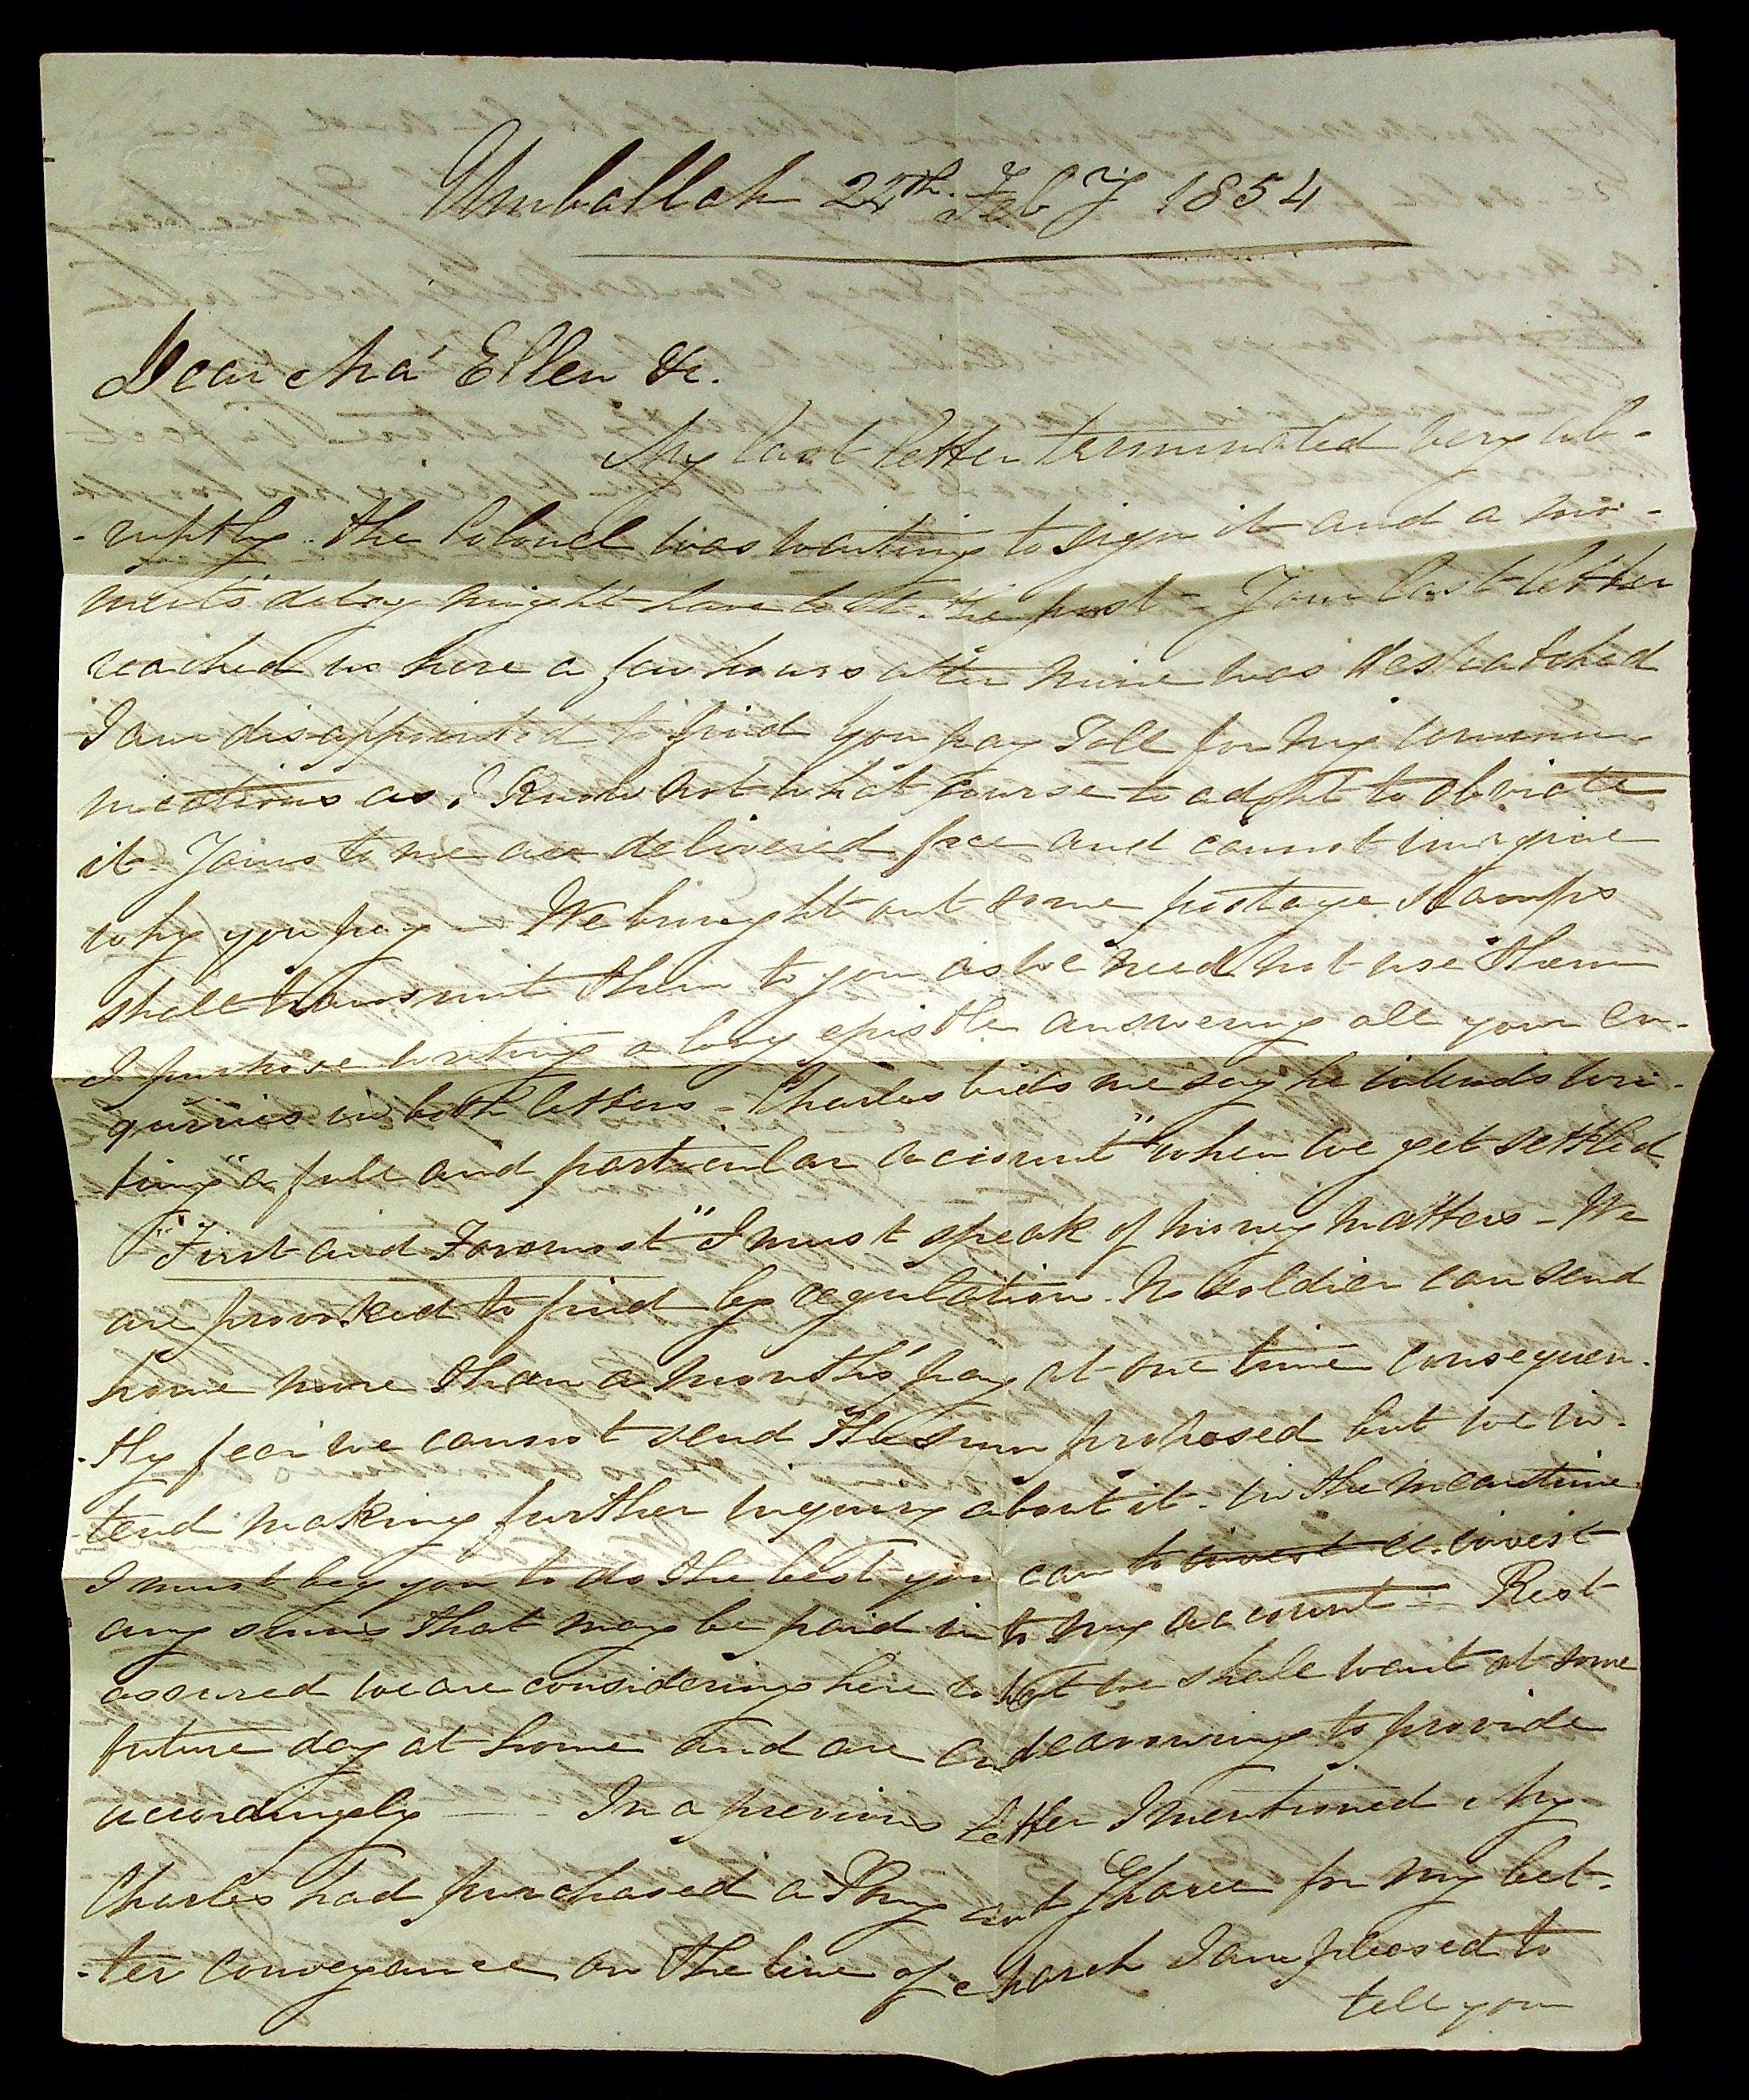 Umballah 22th. Feby 1854
Dear Ma' Ellen &c.
My last letter terminated very ab-
-ruptly. the Colonel was waiting to sign it and a mo-
ment's delay might have lost the post - Your last letter
reached us here a few hours after mine was despatched
I am disappointed to find you pay Toll for my commu-
nications as I know not what course to adopt to obviate
it. Yours to me are delivered free and cannot imagine
why you pay - We brought out some postage stamps
shall transmit them to you as we need not use them
I purpose writing a long epistle answering all your en-
quiries in both letters - Charles bids me say he intends wri-
ting "a full and particular account" when we get settled
"First and Foremost" I must speak of money matters - We
are provoked to find by regulation. No soldier can send
home more than a month's pay at one time consequen-
-tly fear we cannot send the sum proposed but we in-
tend making further inquiry about it. In the meantime
I must beg you to do the best you can to invest invest
any sums that may be paid in to my account - Rest
assured we are considering here what we shall want at some
future day at home and are endeavouring to provide
accordingly - In a previous letter I mentioned My
Charles had purchased a Pony and Gharee for my bet-
-ter conveyance on the line of March I am pleased to
tell you